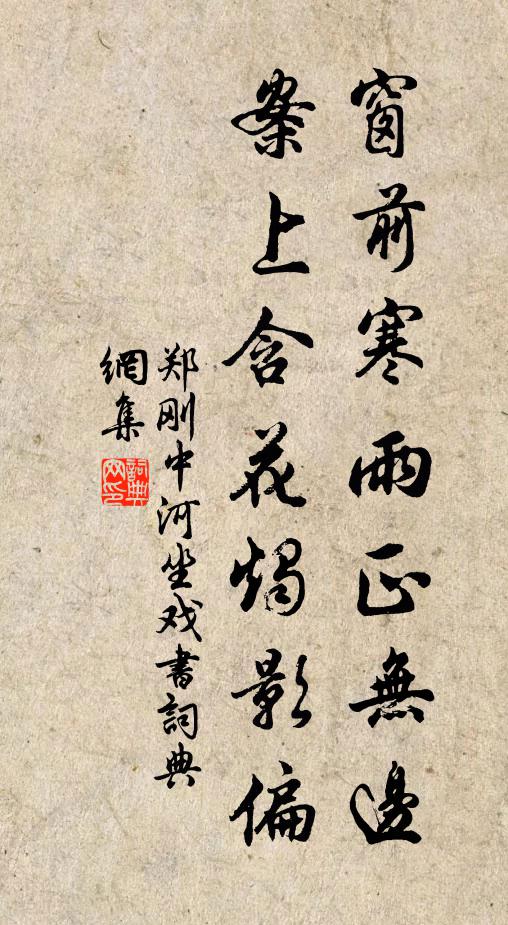 窗前寒雨正無邊
案上含花燭影偏
郑刚中河坐戏書詞典
網集
詞典
网印